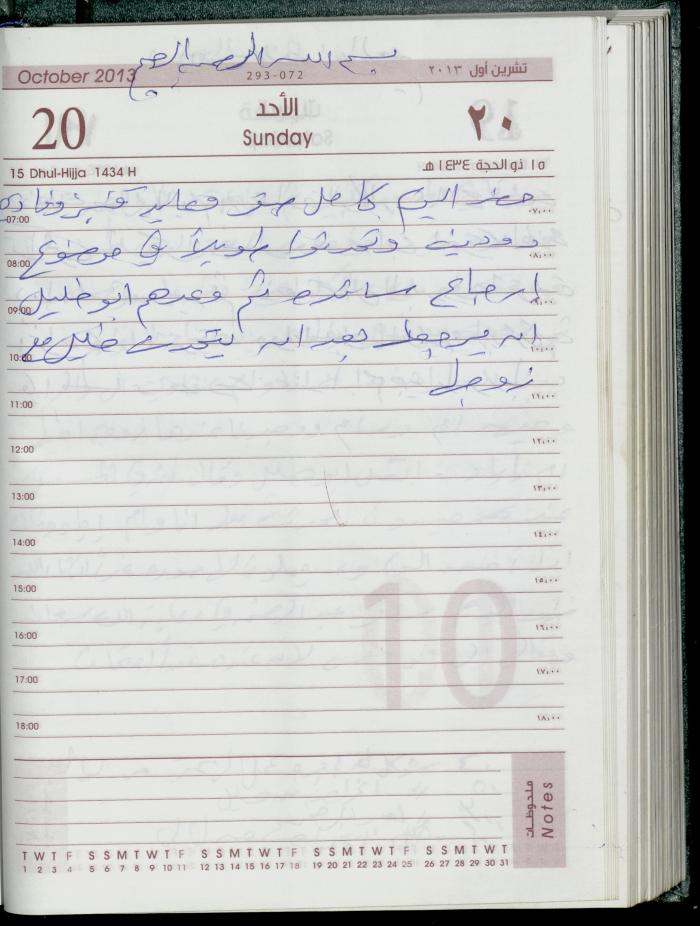 بسم الله الرحمن الرحيم
October 2013
293-072
تشرين أول ٢٠١٣
20
الأحد
Sunday
٢٠
15 Dhul-Hijja 1434 H
١٥ ذو الحجة ١٤٣٤ هـ
حضر اليوم كامل
07:00
٠٧,٠٠
وتحدثوا طويلاً في موضوع
08:00
٠٨,٠٠
إرجاع ثم وعدهم أبو خليل
09:00
٠٩,٠٠
انه يرجعها بعد ان يتحدث خليل مع
10:00
١٠,٠٠
زوجها
11:00
١١,٠٠
12:00
١٢,٠٠
13:00
١٣,٠٠
14:00
١٤,٠٠
15:00
١٥,٠٠
10
16:00
١٦,٠٠
17:00
١٧,٠٠
18:00
١٨,٠٠
ملحوظات
Notes
T W T F S S M T W T F S S M T W T F S S M T W T F S S M T W T
1 2 3 4 5 6 7 8 9 10 11 12 13 14 15 16 17 18 19 20 21 22 23 24 25 26 27 28 29 30 31